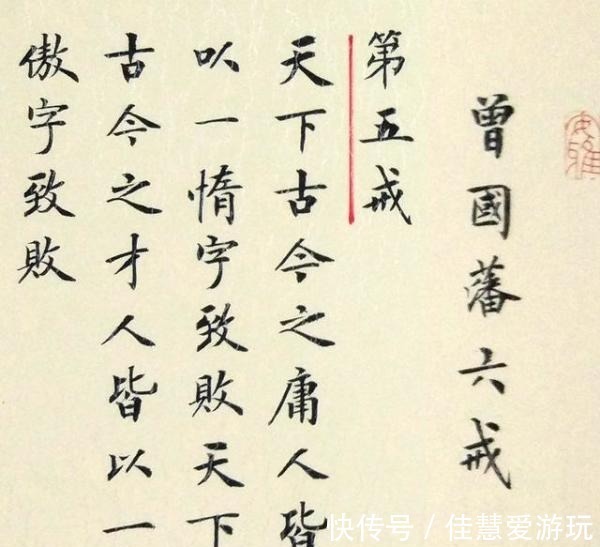 曾國藩六戒
第五戒
天下古今之庸人皆
以一惰字致敗天下
古今之才人皆以一
傲字致敗
快传号 / 佳慧爱游玩